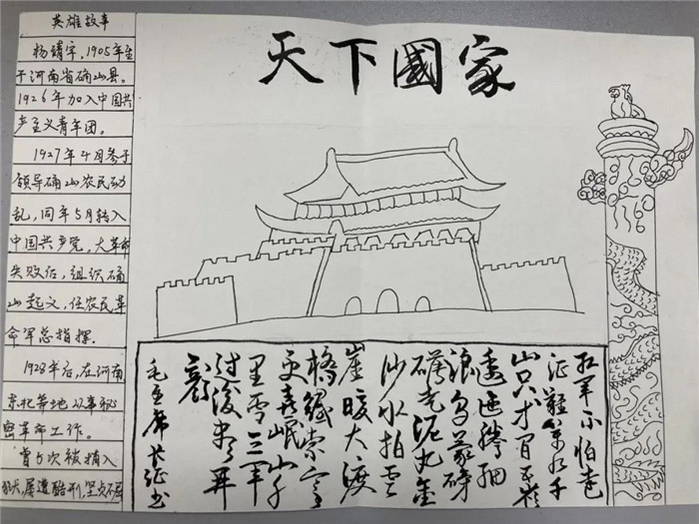 天下國家
英雄故事
杨靖宇，1905年生
于河南省确山县。
1926年加入中国共
产主义青年团。
1927年4月参于
领导确山农民动
乱，同年5月转入
中国共产党，大革命
失败后，组织确
山起义，任农民革
命军总指挥.
1928年后，在河南
东北等地从事秘
密革命工作。
曾5次被捕入
狱，屡遭酷刑，坚贞不屈
红军不怕远
征難万水千
山只才百五岭
逶迤腾细
浪乌蒙磅
礴走泥丸金
沙水拍云
崖暖大渡
橋铁索寒
更喜岷山千
里雪三軍
过後尽开
颜
毛主席长征书